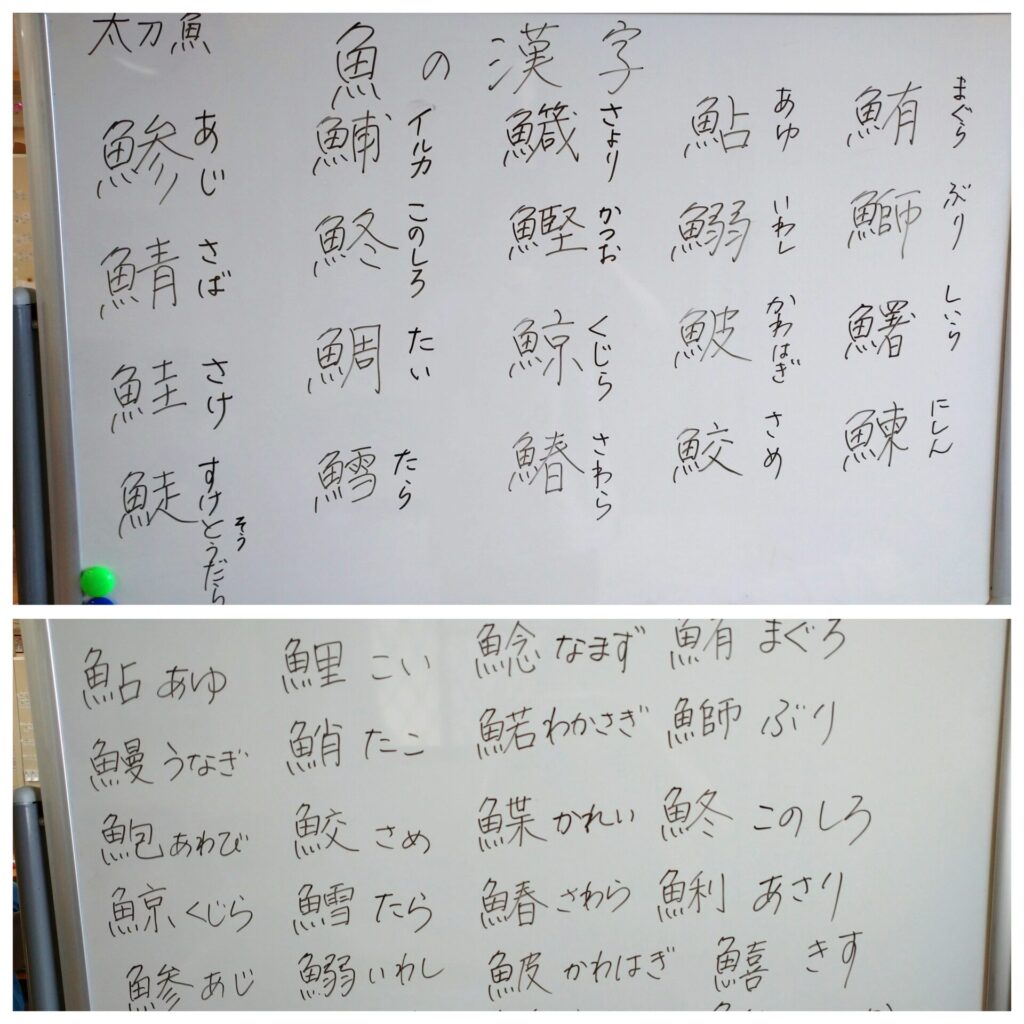 太刀魚
魚の漢字
鮪 まぐら
鰤 ぶり
鱪 しいら
鰊 にしん
鮎 あゆ
鰯 いわし
鮍 かわはぎ
鮫 さめ
鱵 さより
鰹 かつお
鯨 くじら
鰆 さわら
鯆 イルカ
鮗 このしろ
鯛 たい
鱈 たら
鯵 あじ
鯖 さば
鮭 さけ
すけとうだら
そう
鮎 あゆ 鯉 こい 鯰 なまず 鮪 まぐろ
鰻 うなぎ 鮹 たこ 鰙 わかさぎ 鰤 ぶり
鮑 あわび 鮫 さめ 鰈 かれい 鮗 このしろ
鯨 くじら 鱈 たら 鰆 さわら 鯏 あさり
鯵 あじ 鰯 いわし 鮍 かわはぎ 鱚 きす